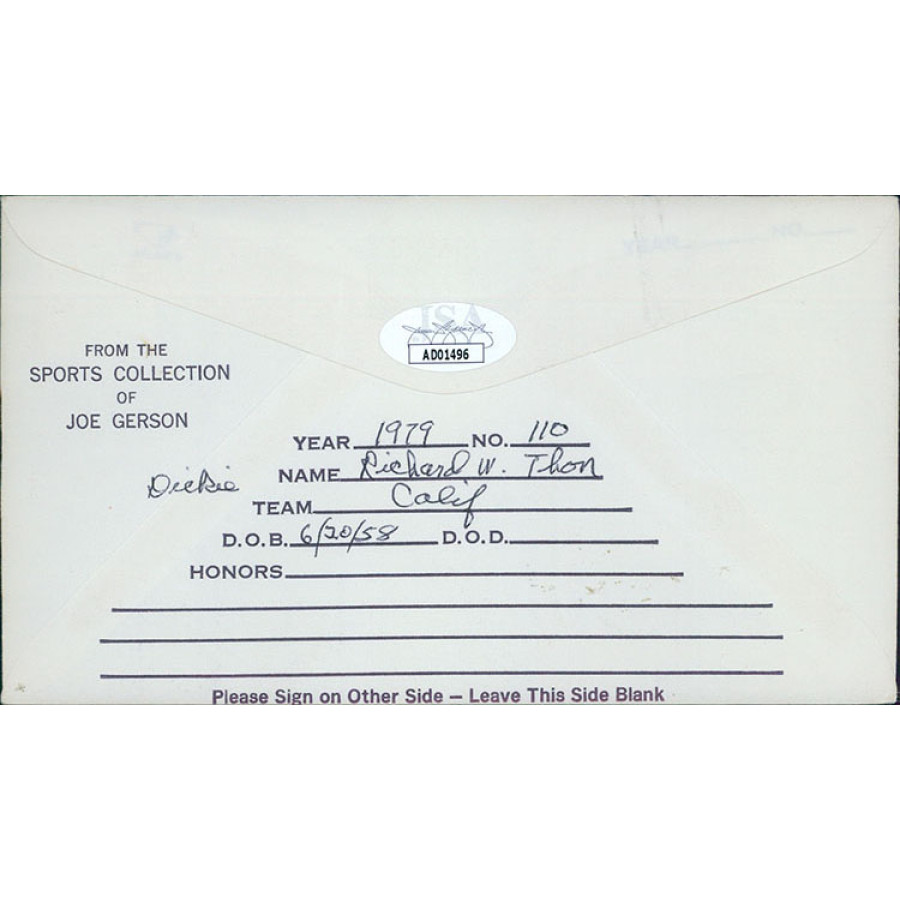 JSA
AD01496
FROM THE
SPORTS COLLECTION
OF
JOE GERSON
YEAR 1979 NO. 110
Dickie NAME Richard W. Thon
TEAM Calif
D.O.B. 6/20/58 D.O.D.
HONORS
Please Sign on Other Side — Leave This Side Blank